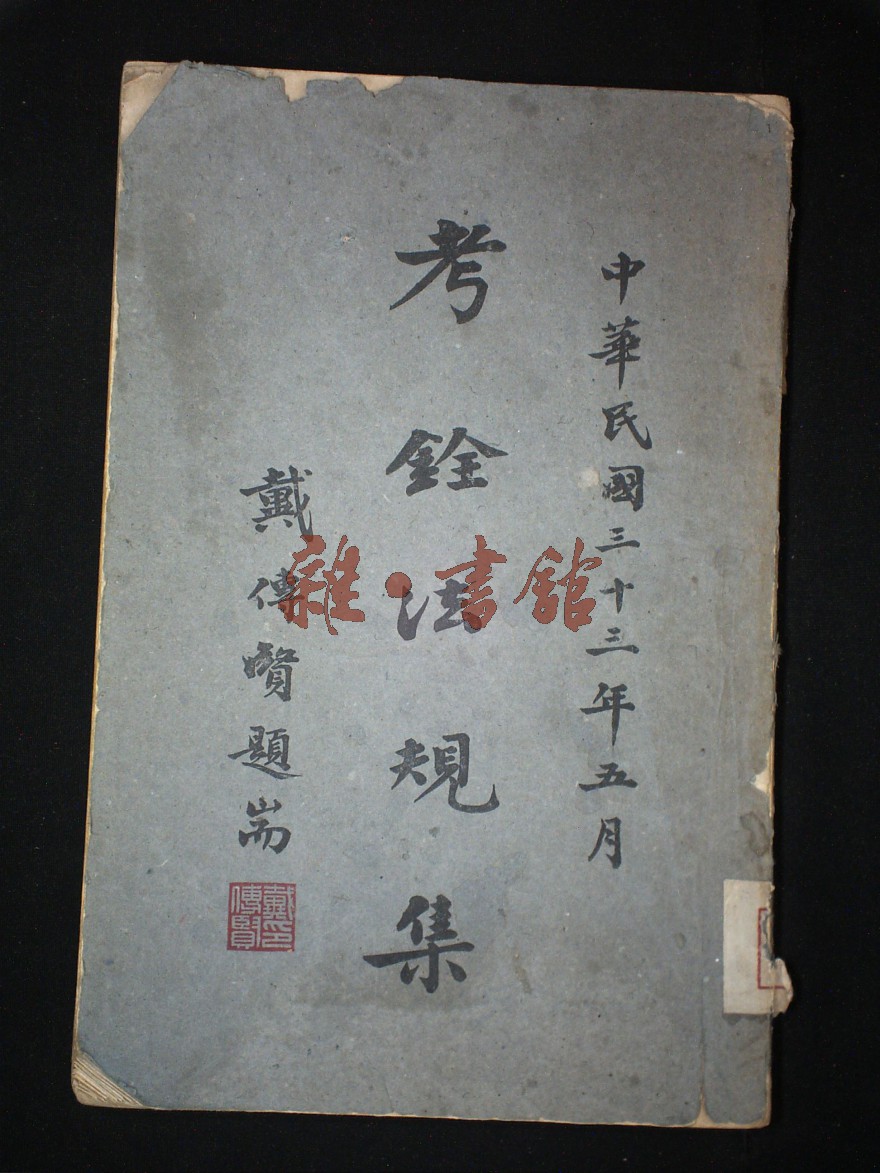 中華民國三十三年五月
考銓法規集
戴傳賢題耑
戴印傳賢
雜·書館